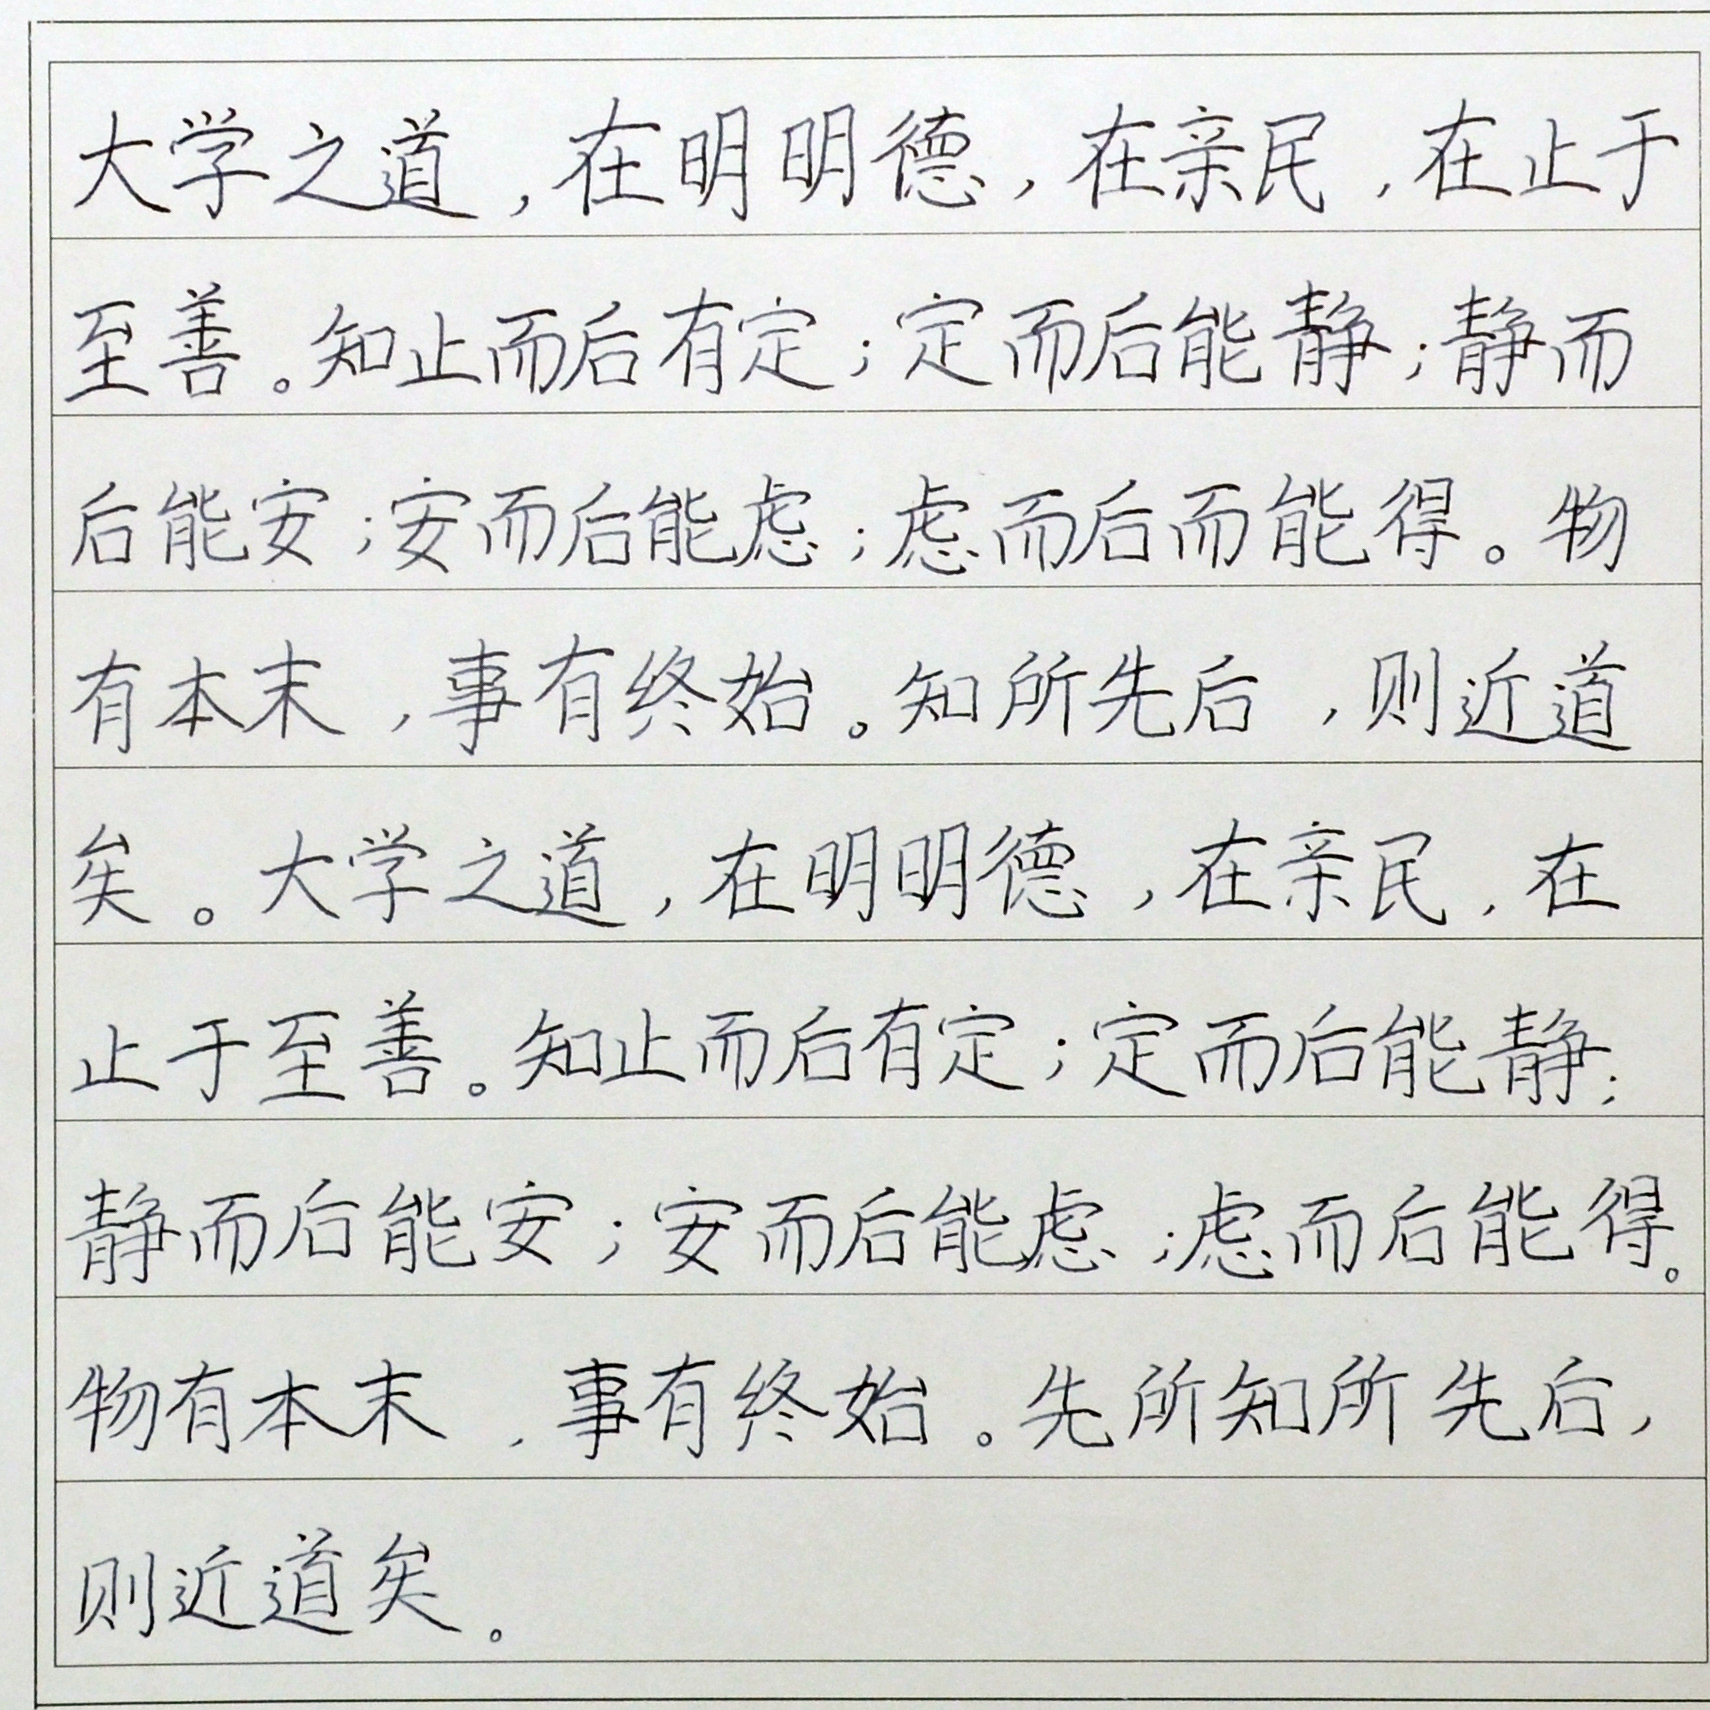 大学之道，在明明德，在亲民，在止于
至善。知止而后有定；定而后能静；静而
后能安；安而后能虑；虑而后而能得。物
有本末，事有终始。知所先后，则近道
矣。大学之道，在明明德，在亲民，在
止于至善。知止而后有定；定而后能静；
静而后能安；安而后能虑；虑而后能得。
物有本末，事有终始。先所知所先后，
则近道矣。